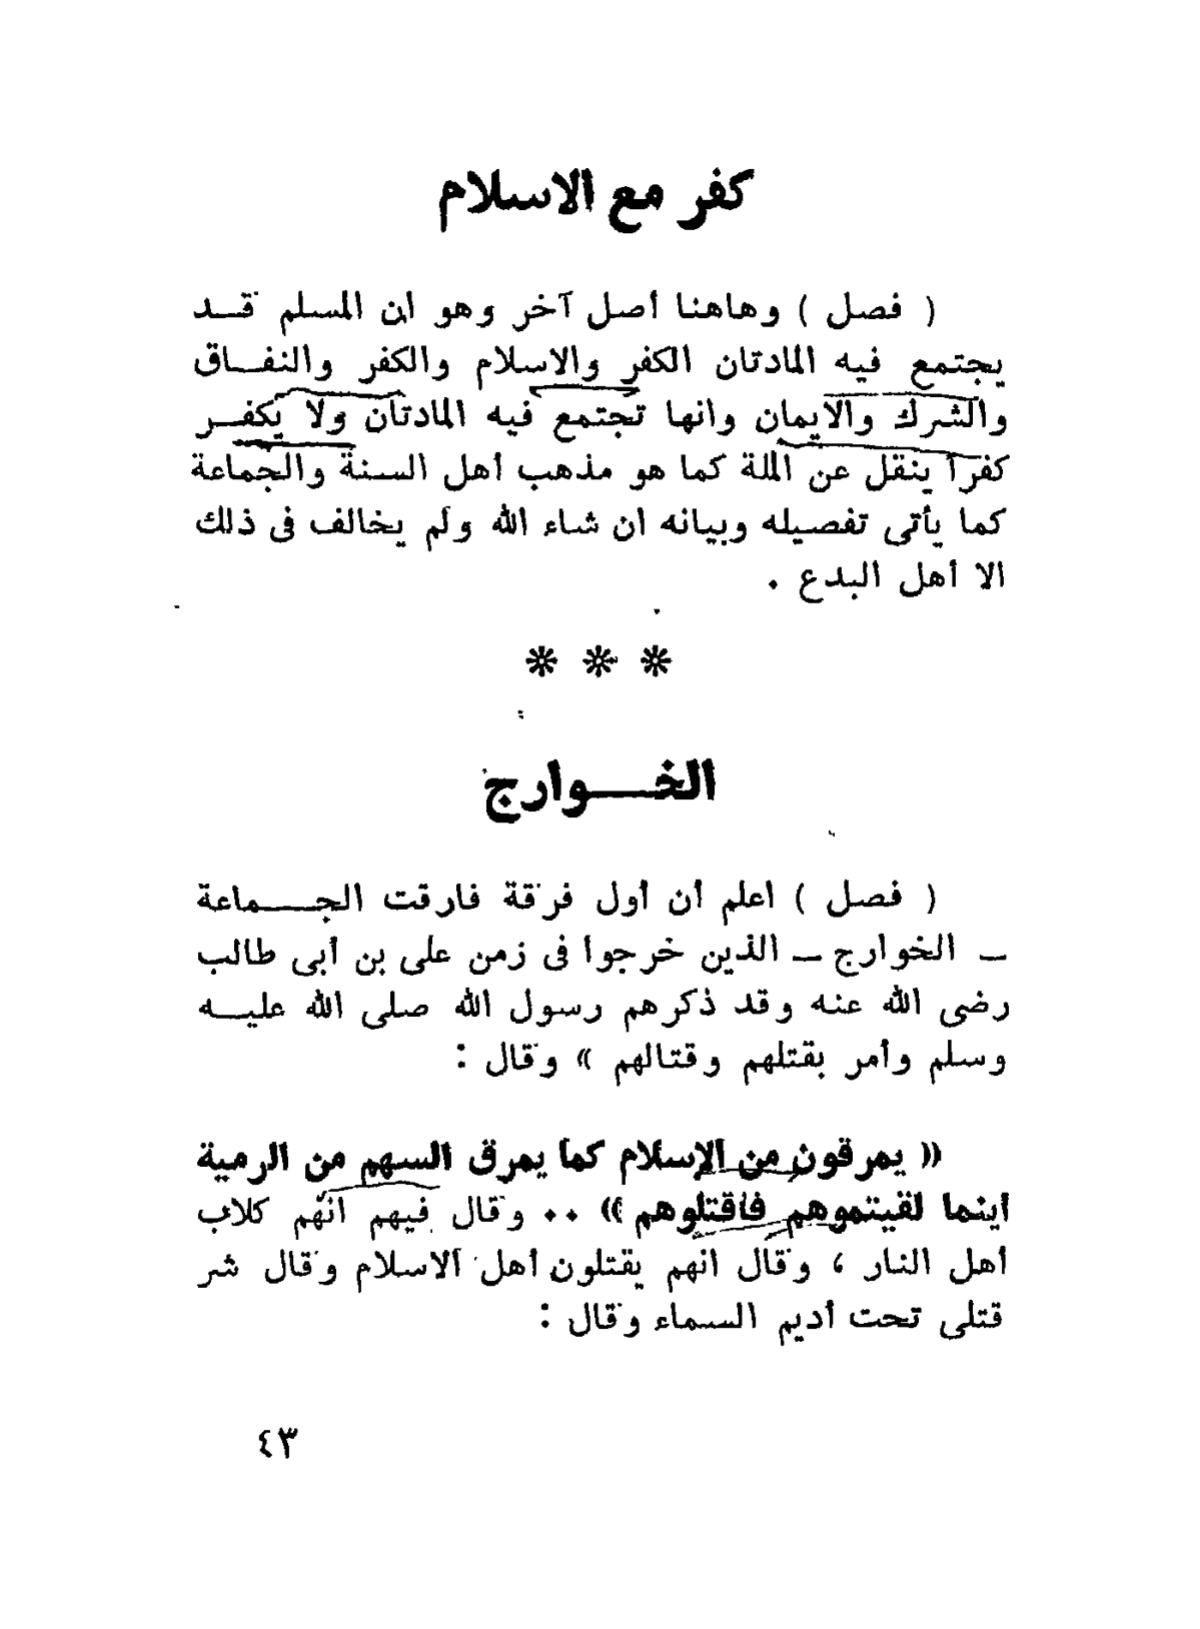 كفر مع الاسلام
( فصل ) وهاهنا أصل آخر وهو ان المسلم قــد
يجتمع فيه المادتان الكفر والاسلام والكفر والنفــاق
والشرك والايمان وانها تجتمع فيه المادتان ولا يكفــر
كفرا ينقل عن الملة كما هو مذهب أهل السـنة والجماعة
كما يأتى تفصيله وبيانه ان شاء الله ولم يخالف فى ذلك
الا أهل البدع .
* * *
الخـــوارج
( فصل ) اعلم أن أول فرقة فارقت الجـــماعة
ــ الخوارج ــ الذين خرجوا فى زمن على بن أبى طالب
رضى الله عنه وقد ذكرهم رسول الله صلى الله عليــه
وسلم وأمر بقتلهم وقتالهم » وقال :
« يمرقون من الإسلام كما يمرق السهم من الرمية
اينما لقيتموهم فاقتلوهم » .. وقال فيهم انهم كلاب
أهل النار ، وقال انهم يقتلون أهل الاسلام وقال شر
قتلى تحت أديم السماء وقال :
٤٣